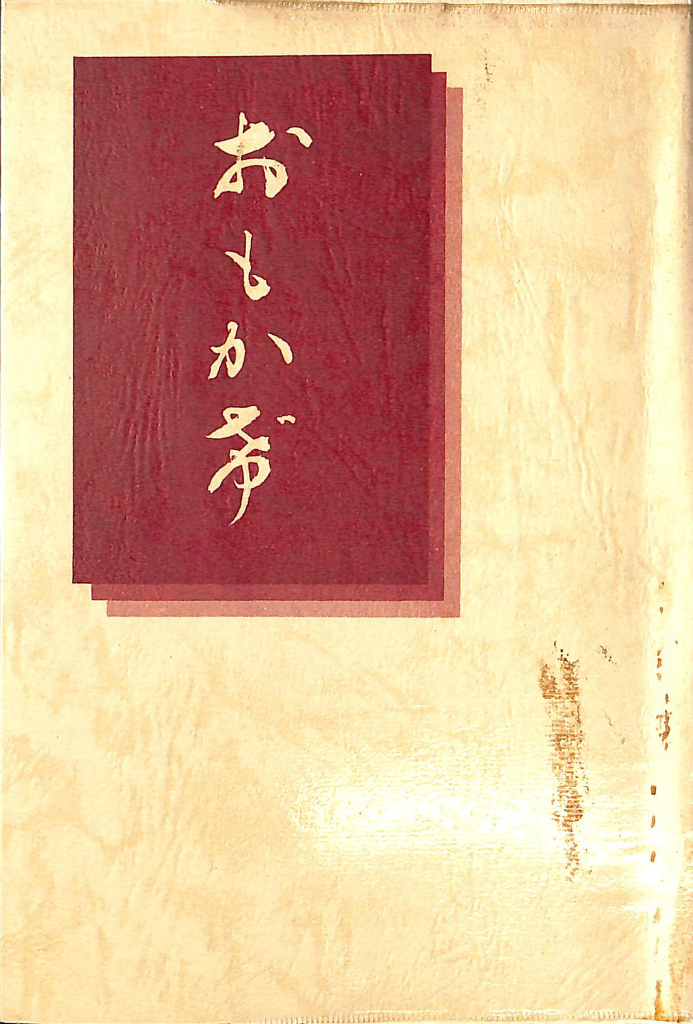 おもかげ